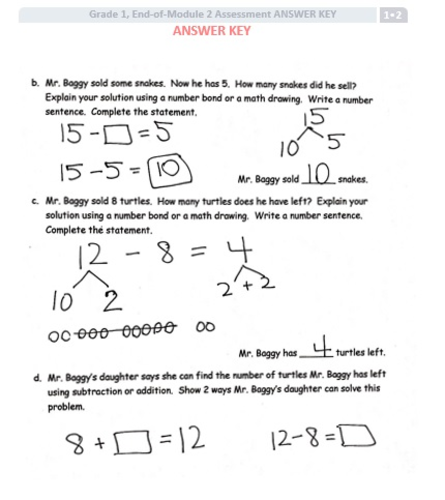 Grade 1, End-of-Module 2 Assessment ANSWER KEY 1•2
ANSWER KEY
b. Mr. Baggy sold some snakes. Now he has 5. How many snakes did he sell?
Explain your solution using a number bond or a math drawing. Write a number
sentence. Complete the statement.
15 - □ = 5
15
10 5
15 - 5 = 10
Mr. Baggy sold 10 snakes.
c. Mr. Baggy sold 8 turtles. How many turtles does he have left? Explain your
solution using a number bond or a math drawing. Write a number sentence.
Complete the statement.
12 - 8 = 4
10 2
2 + 2
Mr. Baggy has 4 turtles left.
d. Mr. Baggy's daughter says she can find the number of turtles Mr. Baggy has left
using subtraction or addition. Show 2 ways Mr. Baggy's daughter can solve this
problem.
8 + □ = 12 12 - 8 = □